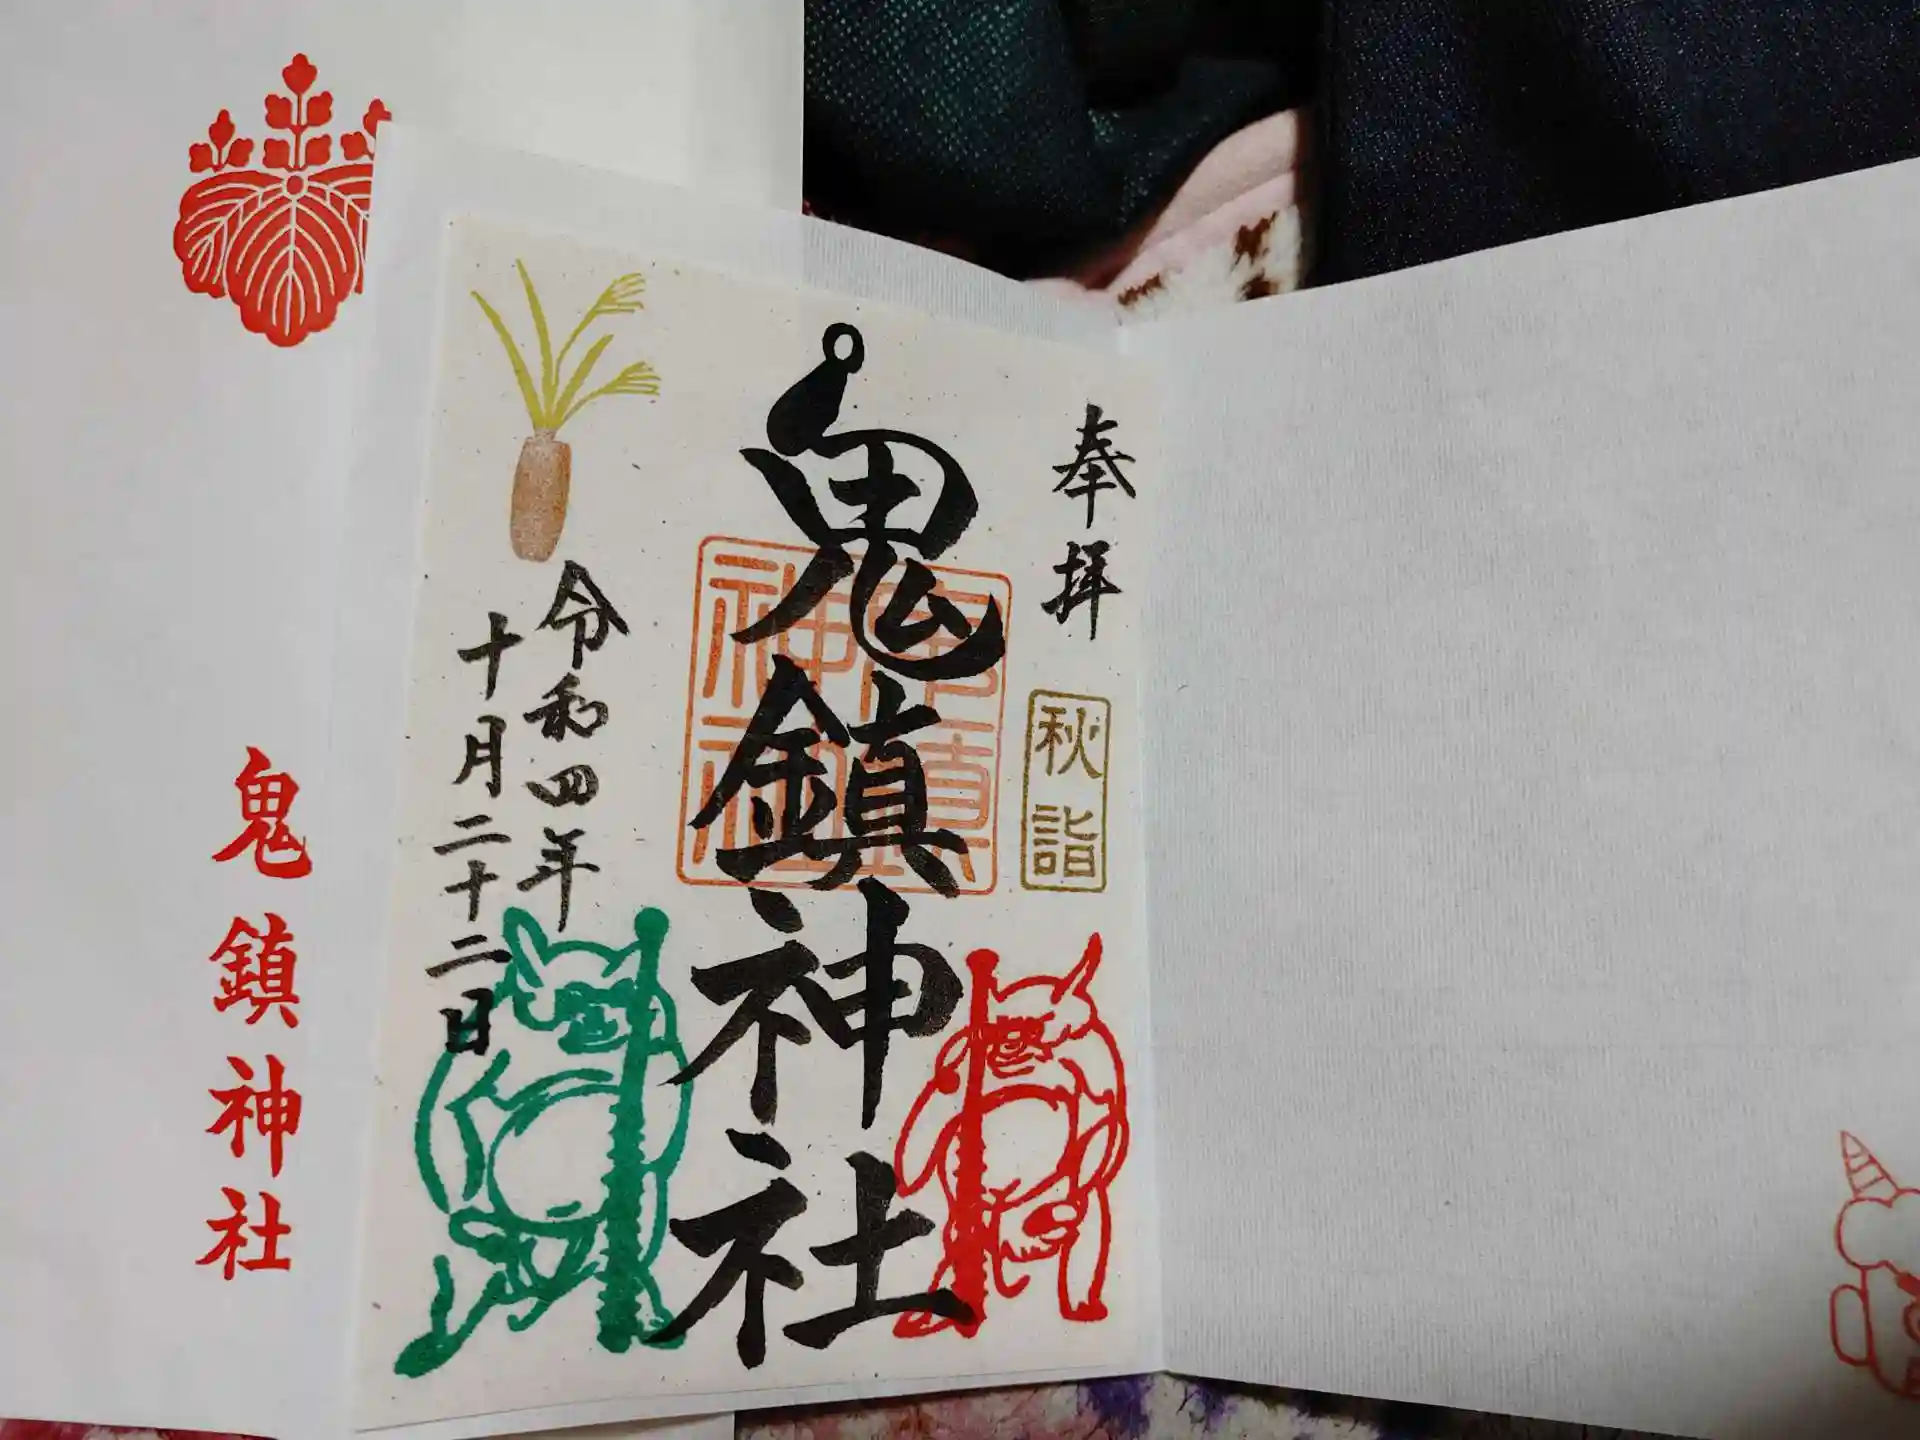 奉拝
秋詣
鬼鎮神社
鬼鎮神社
令和四年
十月二十二日
鬼鎮神社